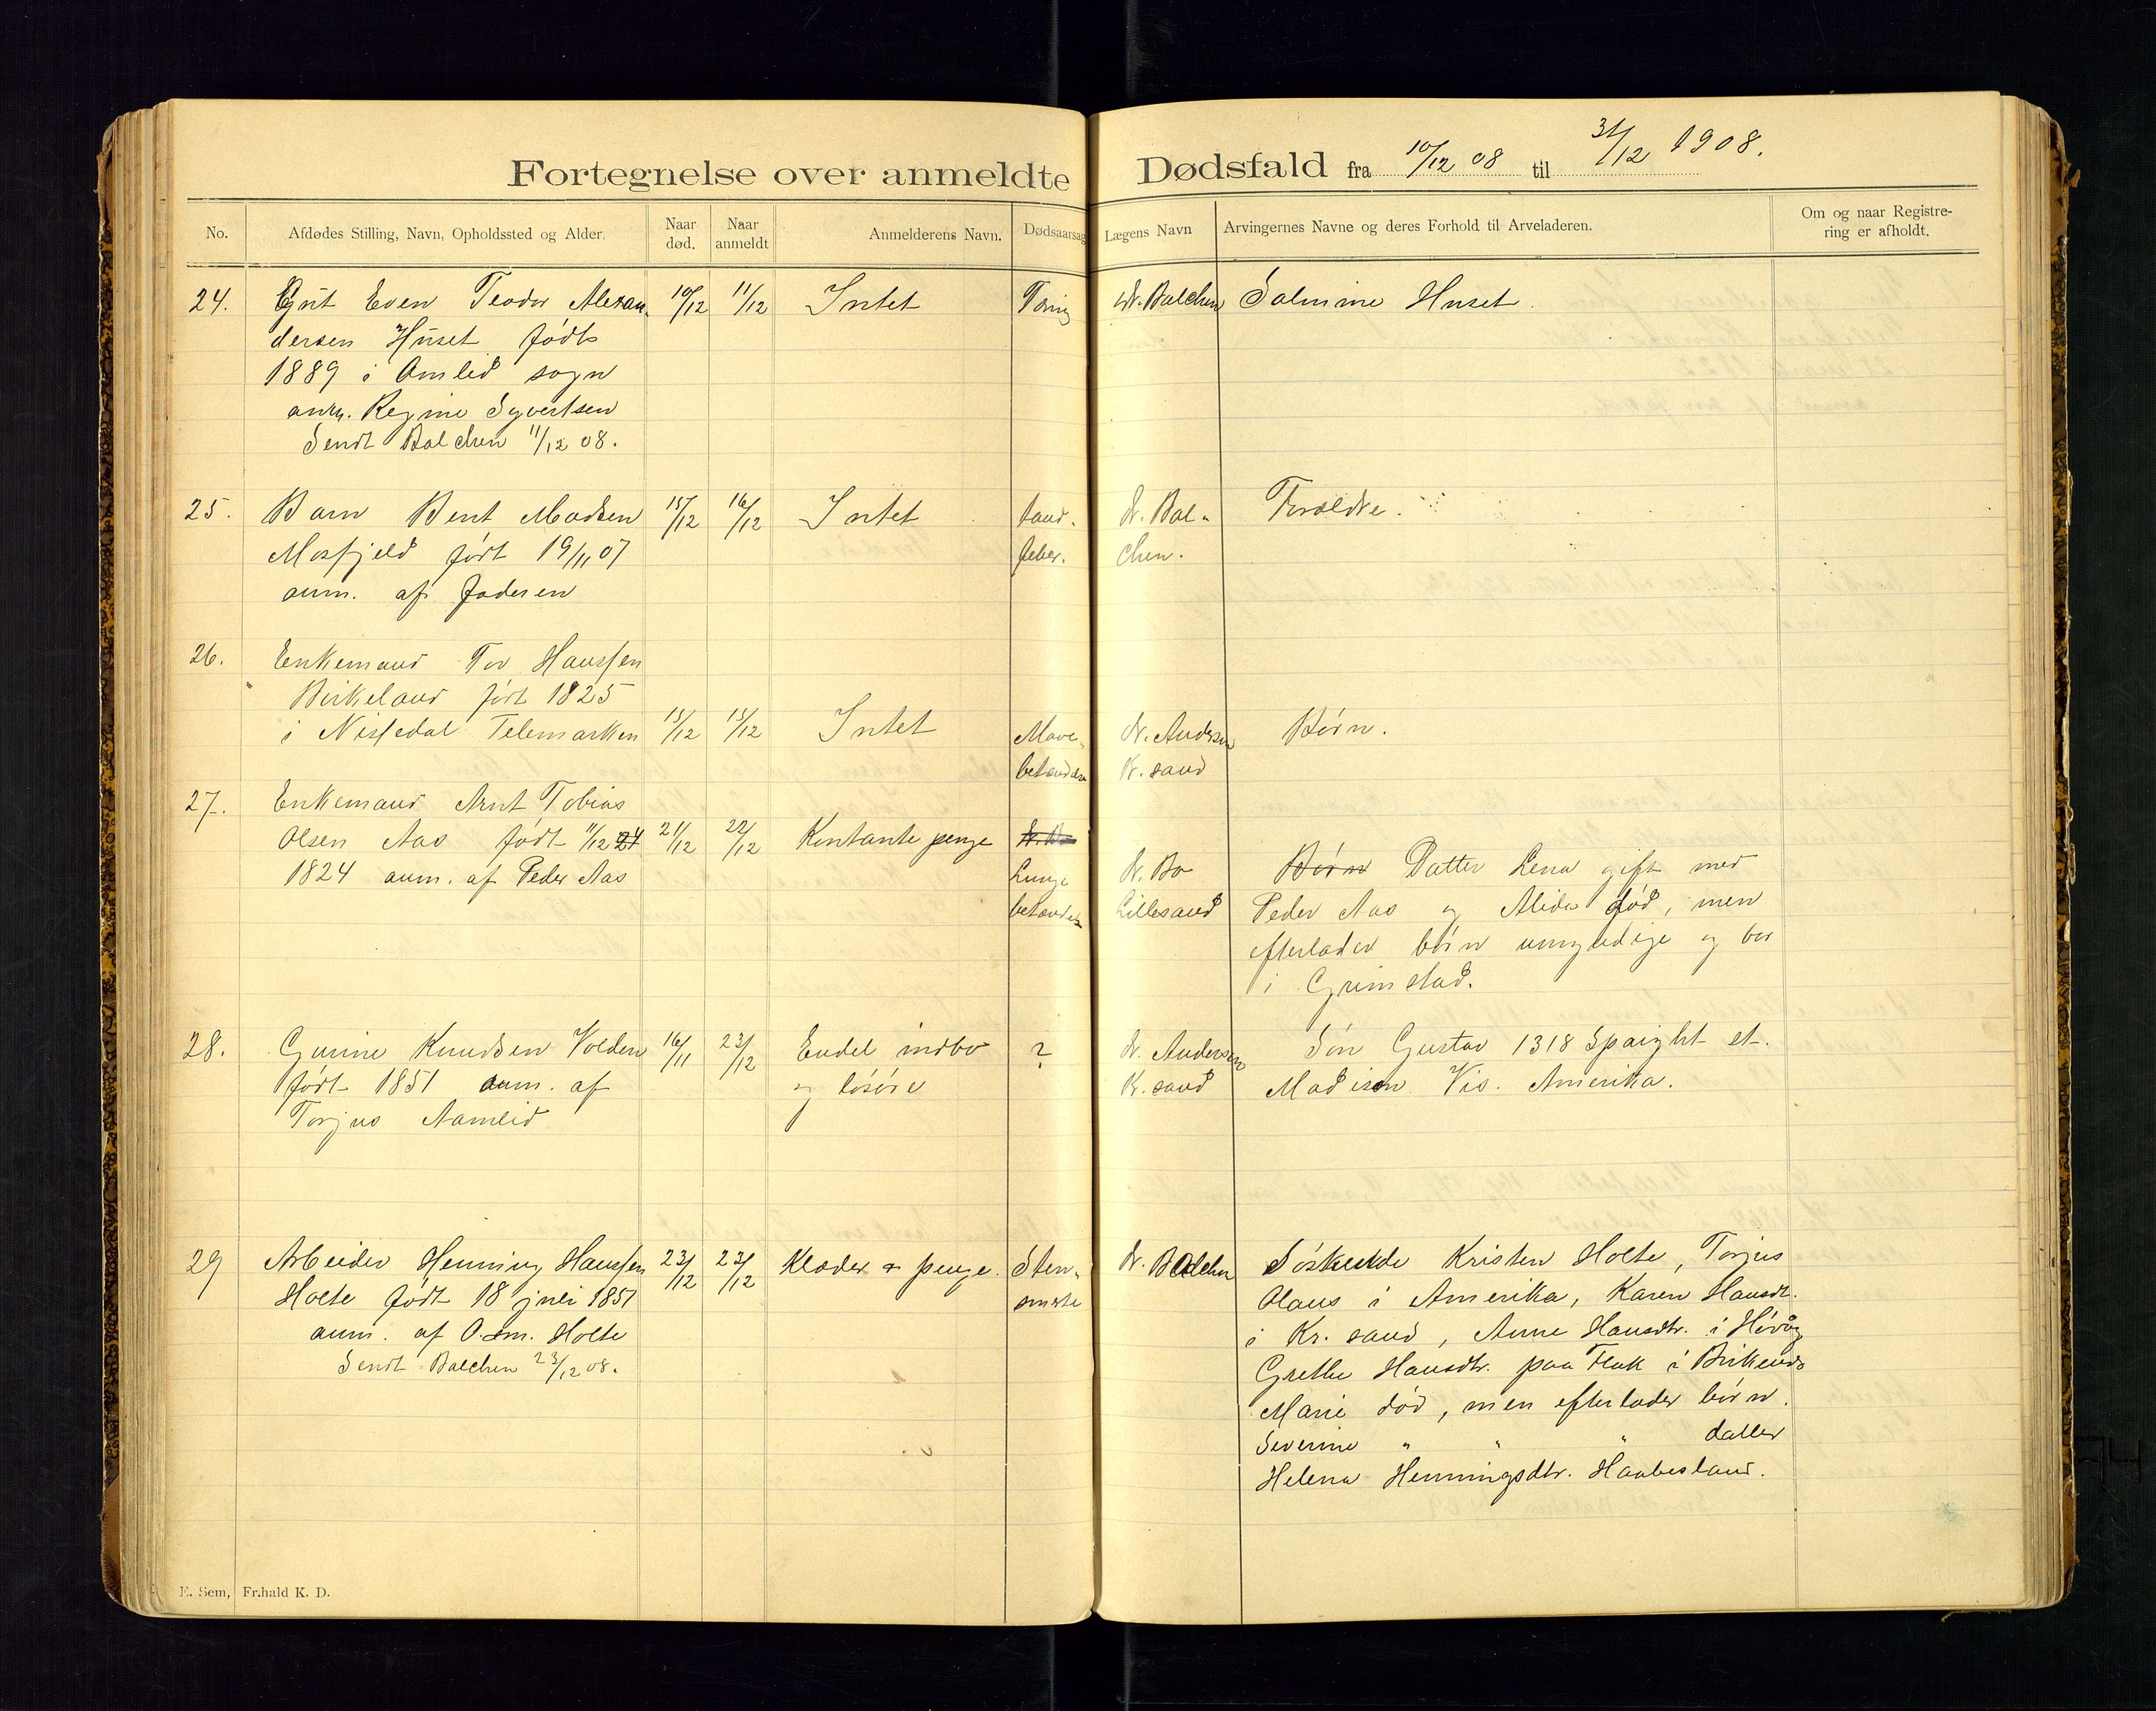 Fortegnelse over anmeldte Dødsfald fra 10/12 08 til 31/12 1908.
No. Afdødes Stilling, Navn, Opholdssted og Alder. Naar død. Naar anmeldt Anmelderens Navn. Dødsaarsag Lægens Navn Arvingernes Navne og deres Forhold til Arveladeren. Om og naar Registrering er afholdt.
24. Gut Even Teodor Alexan- 10/12 11/12 Intet Tæring Dr. Balchen Salmine Huset.
dersen Huset født
1889 i Omlid sogn
anm. Regine Syvertsen
Sendt Balchen 11/12 08.
25. Barn Bent Madsen 15/12 16/12 Intet tand- Dr. Bal- Forældre.
Mosfjeld født 19/11 07 feber. chen.
anm. af faderen
26. Enkemand Tov Hanssen
Birkeland født 1825
i Nissedal Telemarken 15/12 15/12 Intet Mave- Dr. Andersen Børn.
betændelse Kr. sand
27. Enkemand Arnt Tobias
Olsen Aas født 11/12 24 21/12 22/12 Kontante penge Dr. Bo
1824 anm. af Peder Aas Lunge Dr. Bo Børn Datter Lena gift med
betændels Lillesand Peder Aas og Alida død, men
efterlader børn umyndige og bor
i Grimstad.
28. Gurine Knudsen Volden 16/11 23/12 Endel indbo ? Dr. Andersen Søn Gustav 1318 Spaight st.
født 1851 anm. af og løsøre Kr. sand Madison Vis. Amerika.
Torjus Aamlid
29 Arbeider Henning Hanssen 23/12 23/12 Klæder & penge. Sten- Dr. Balchen Søskende Kristen Holte, Torjus
Holte født 18 juli 1851 smerte Olaus i Amerika, Karen Hansdt.
anm. af O. Holte i Kr. sand, Anne Hansdtr. i Høvåg
Sendt Balchen 23/12 08. Grethe Hansdtr. paa Flak i Birkenes
Marie død, men efterlader børn.
Severine " " " datter
Helena Henningsdtr. Haabesland.
E. Sem, Fr.hald K. D.